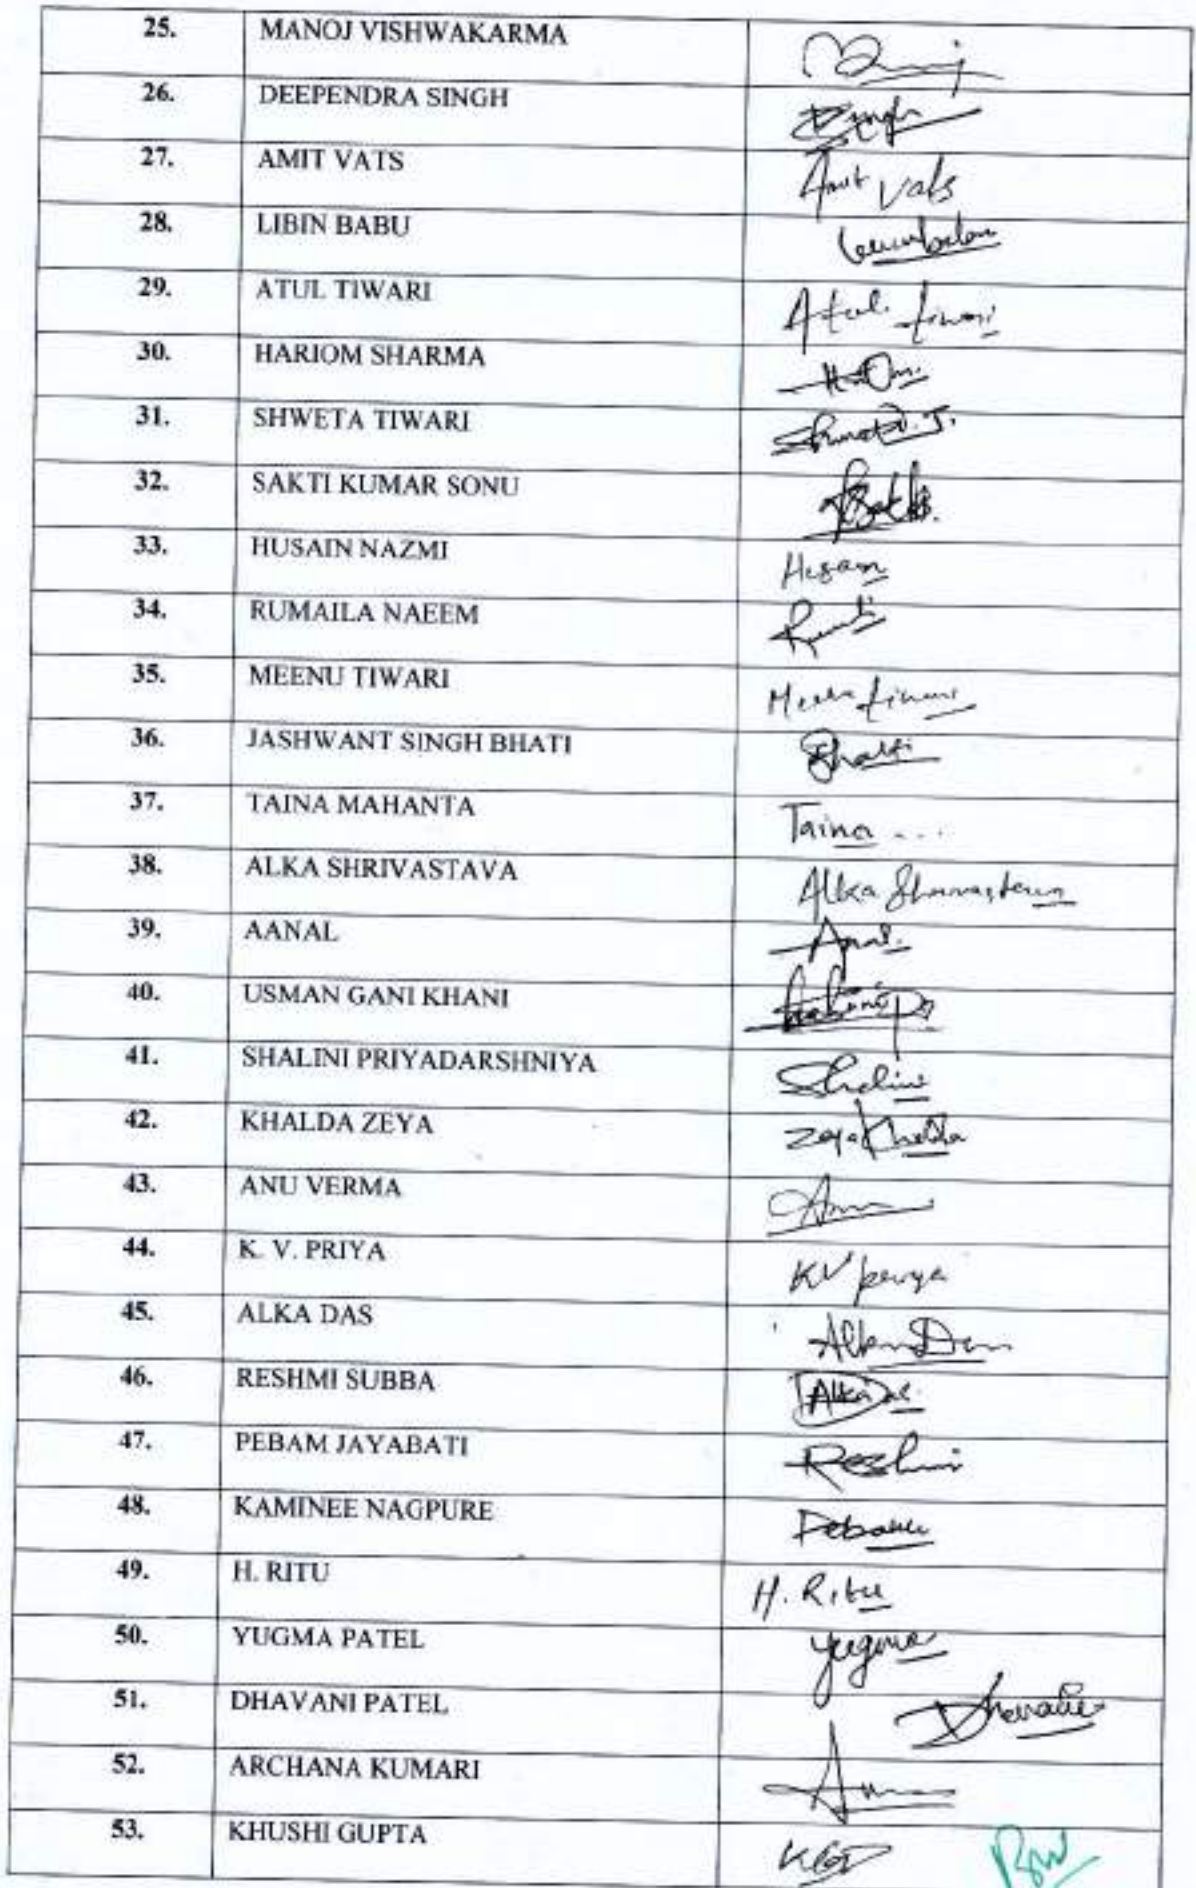 25. MANOJ VISHWAKARMA
26. DEEPENDRA SINGH Singh
27. AMIT VATS Amit Vats
28. LIBIN BABU
29. ATUL TIWARI Atul tiwari
30. HARIOM SHARMA
31. SHWETA TIWARI Shweta.T.
32. SAKTI KUMAR SONU
33. HUSAIN NAZMI Husain
34. RUMAILA NAEEM
35. MEENU TIWARI Meenu tiwari
36. JASHWANT SINGH BHATI Bhati
37. TAINA MAHANTA Taina ...
38. ALKA SHRIVASTAVA Alka Shrivastava
39. AANAL
40. USMAN GANI KHANI
41. SHALINI PRIYADARSHNIYA Shalini
42. KHALDA ZEYA Zeya Khalda
43. ANU VERMA
44. K. V. PRIYA KV priya
45. ALKA DAS
46. RESHMI SUBBA Alka Das.
47. PEBAM JAYABATI Reshmi
48. KAMINEE NAGPURE
49. H. RITU H. Ritu
50. YUGMA PATEL Yugma
51. DHAVANI PATEL
52. ARCHANA KUMARI
53. KHUSHI GUPTA